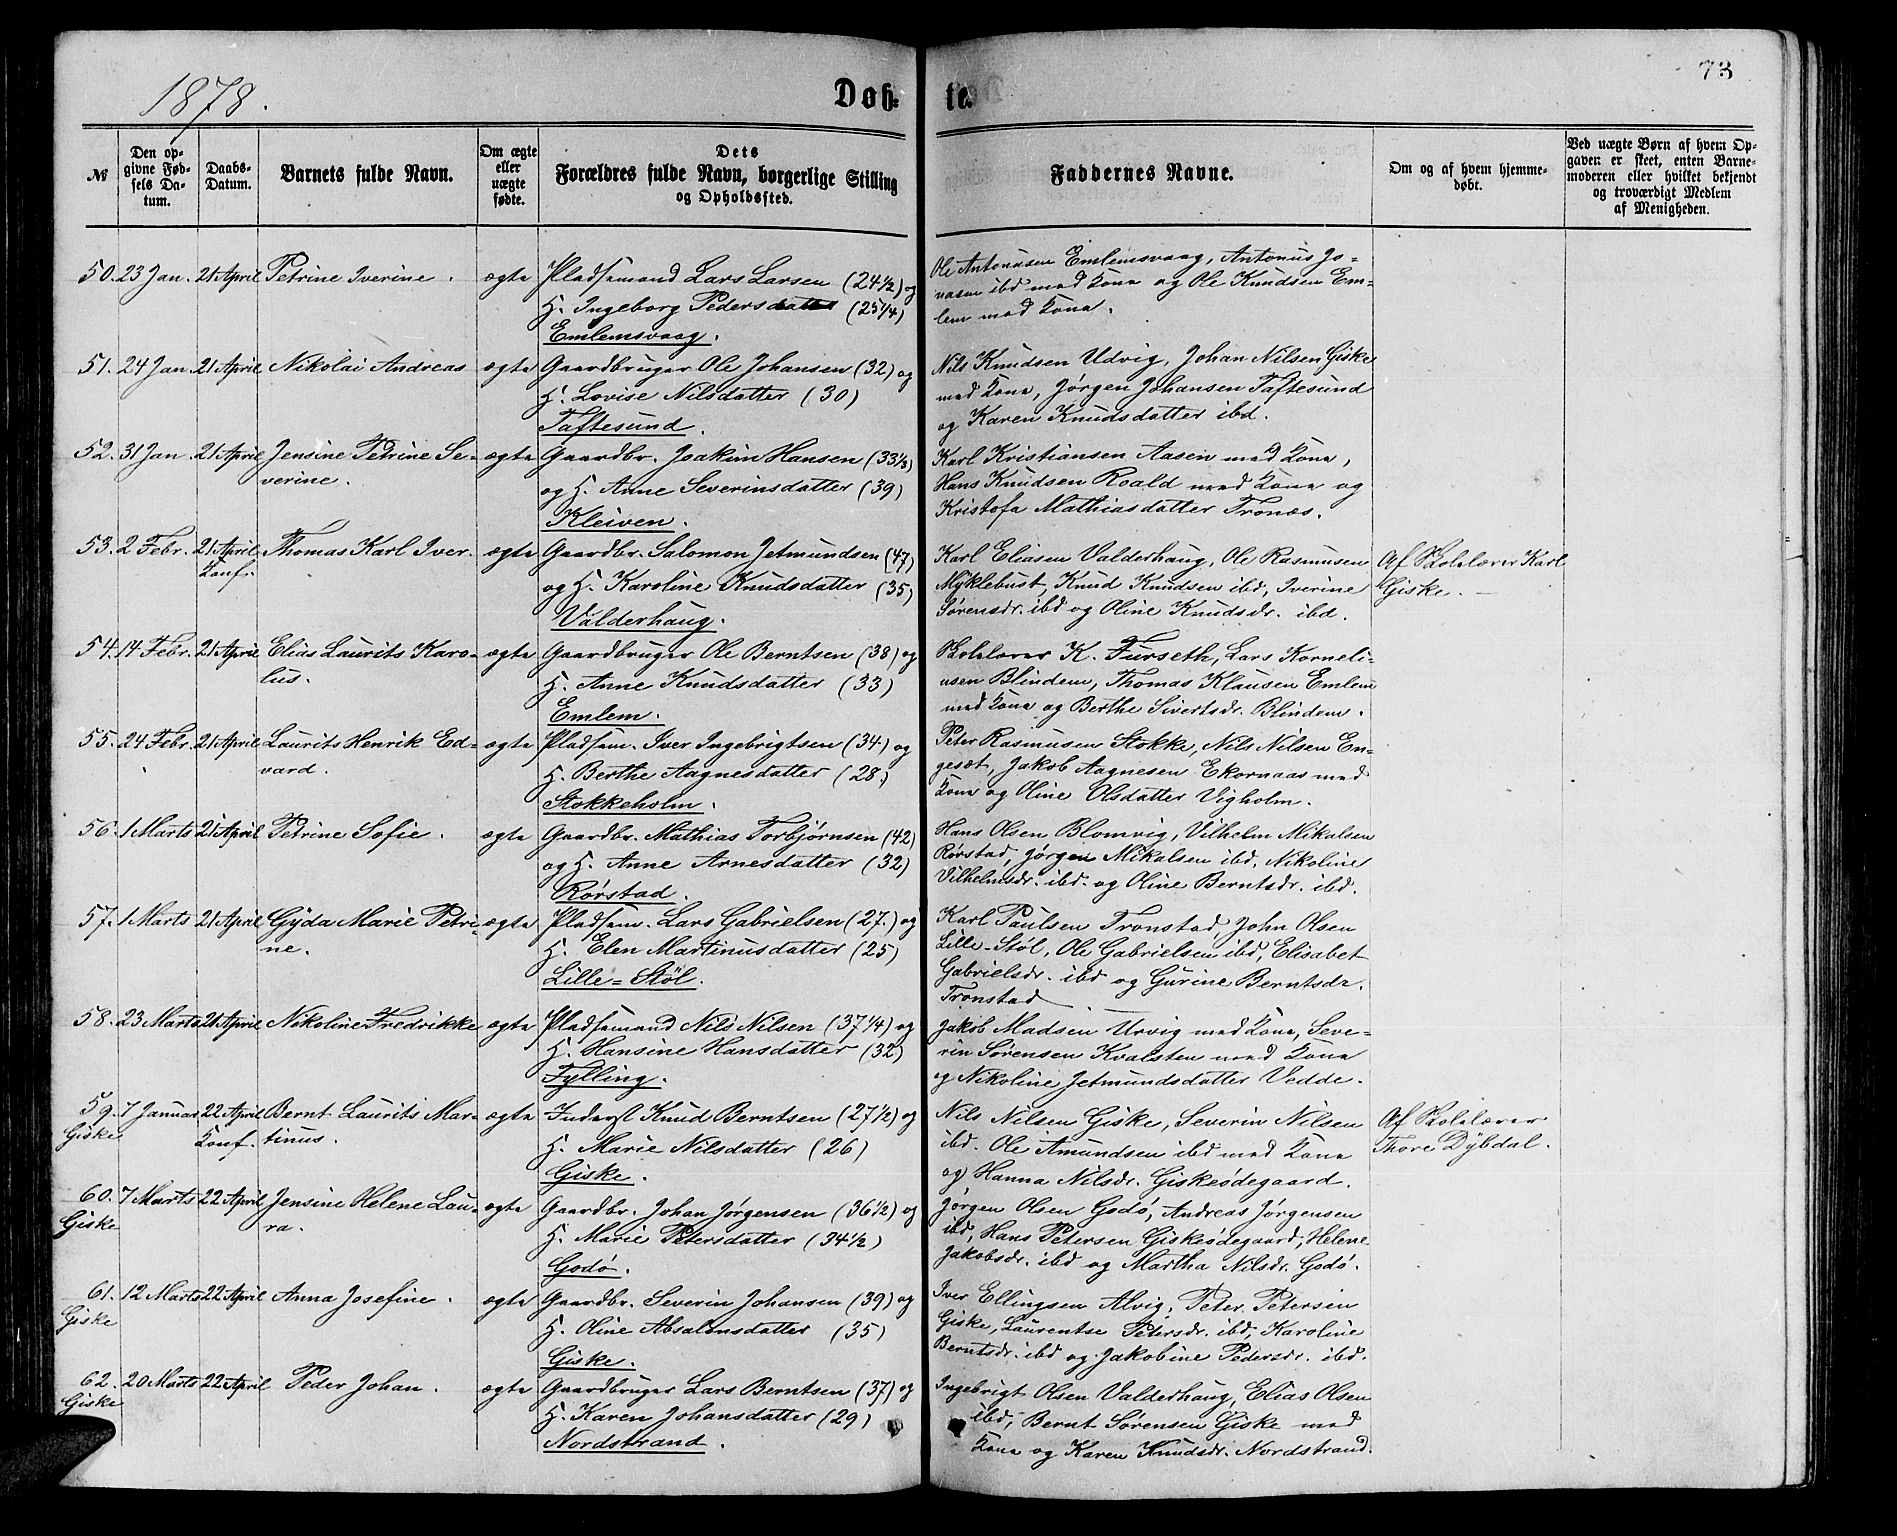 1878.
Døb-
te.
73
№
Den op-
givne Fød-
sels Da-
tum.
Daabs-
Datum.
Barnets fulde Navn.
Om ægte
eller
uægte
fødte.
Dets
Forældres fulde Navn, borgerlige Stilling
og Opholdssted.
Faddernes Navne.
Om og af hvem hjemme-
døbt.
Ved uægte Børn af hvem Op-
gaven er skeet, enten Barne-
moderen eller hvilket bekjendt
og troværdigt Medlem
af Menigheden.
50. 23 Jan. 21 April Petrine Iverine. ægte Pladsemand Lars Larsen (24 1/2) og
H. Ingeborg Pedersdatter (25 1/4)
Emlemsvaag.
Ole Antonusen Emlemsvaag, Antonius Jo-
nasen ibd med Kone og Ole Knudsen Em-
lem med Kone.
51. 24 Jan. 21 April Nikolai Andreas ægte Gaardbruger Ole Johansen (32) og
H. Lovise Nilsdatter (30)
Taftesund.
Nils Knudsen Udvig, Johan Nilsen Giske
med Kone, Jørgen Johansen Taftesund
og Karen Knudsdatter ibd.
52. 31 Jan. 21 April Jensine Petrine Se- ægte Gaardbr. Joakim Hansen (33 1/3)
verine. og H. Anne Severinsdatter (39)
Kleiven.
Karl Kristiansen Aasen med Kone,
Hans Knudsen Roald med Kone og
Kristofa Mathiasdatter Tronæs.
53. 2 Febr. 21 April Thomas Karl Iver. ægte Gaardbr. Salomon Jetmundsen (47)
Konf. og H. Karoline Knudsdatter (35)
Valderhaug.
Karl Eliasen Valderhaug, Ole Rasmusen
Myklebust, Knud Knudsen ibd, Iverine
Sørensdr. ibd og Oline Knudsdr. ibd.
Af Skolelærer Karl
Giske.
54. 14 Febr. 21 April Elias Laurits Karo- ægte Gaardbruger Ole Berntsen (38) og
lus. H. Anne Knudsdatter (33)
Emlem.
Skolelærer K. Furseth, Lars Korneli-
usen Blindem, Thomas Klausen Emlem
med Kone og Berthe Sivertsdr. Blindem.
55. 24 Febr. 21 April Laurits Henrik Ed- ægte Pladsem. Iver Ingebrigtsen (34) og
vard. H. Berthe Aagnesdatter (28)
Stokkeholm.
Peter Rasmusen Stokke, Nils Nilsen En-
gesæt, Jakob Aagnesen Ekornaas med
Kone og Oline Olsdatter Vigholm.
56. 1 Marts 21 April Petrine Sofie. ægte Gaardbr. Mathias Torbjørnsen (42)
og H. Anne Arnesdatter (32)
Rørstad.
Hans Olsen Blomvig, Vilhelm Mikalsen
Rørstad, Jørgen Mikalsen ibd, Nikoline
Vilhelmsdr. ibd. og Oline Berntsdr. ibd.
57. 1 Marts 21 April Gyda Marie Petri- ægte Pladsem. Lars Gabrielsen (27.) og
ne. H. Elen Martinusdatter (25)
Lille-Støl.
Karl Paulsen Tronstad, John Olsen
Lille-Støl, Ole Gabrielsen ibd, Elisabet
Gabrielsdr. ibd og Gurine Berntsdr.
Tronstad
58. 23 Marts 21 April Nikoline Fredrikke ægte Pladsemand Nils Nilsen (37 1/4) og
H. Hansine Hansdatter (32)
Fylling.
Jakob Madsen Urvig med Kone, Seve-
rin Sørensen Kvalsten med Kone
og Nikoline Jetmundsdatter Vedde.
59. 7 Januar 22 April Bernt Laurits Mar- ægte Inderst Knud Berntsen (27 1/2) og
Giske Konf. tinus. H. Marie Nilsdatter (26)
Giske.
Nils Nilsen Giske, Severin Nilsen
ibd. Ole Amundsen ibd med Kone
og Hanna Nilsdr. Giskeødegaard.
Af Skolelærer
Thore Dybdal.
60. 7 Marts 22 April Jensine Helene Lau- ægte Gaardbr. Johan Jørgensen (36 1/2) og
Giske ra. H. Marie Petersdatter (34 1/2)
Godø.
Jørgen Olsen Godø, Andreas Jørgensen
ibd, Hans Petersen Giskeødegaard, Helene
Jakobsdr. ibd og Martha Nilsdr. Godø.
61. 12 Marts 22 April Anna Josefine. ægte Gaardbr. Severin Johansen (39) og
Giske H. Oline Absalonsdatter (35)
Giske.
Iver Ellingsen Alvig, Peter Petersen
Giske, Laurentse Petersdr. ibd, Karoline
Berntsdr. ibd og Jakobine Pedersdr. ibd.
62. 20 Marts 22 April Peder Johan. ægte Gaardbruger Lars Berntsen (37) og
Giske H. Karen Johansdatter (29)
Nordstrand.
Ingebrigt Olsen Valderhaug, Elias Olsen
ibd, Bernt Sørensen Giske med
Kone og Karen Knudsdr. Nordstrand.